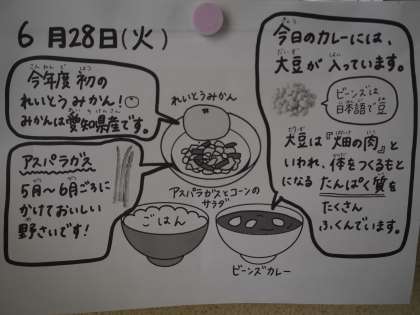 6月28日(火)
今年度 初の
れいとうみかん!
みかんは愛知県産です。
アスパラガス
5月～6月ごろに
かけておいしい
野さいです!
れいとうみかん
アスパラガスとコーンの
サラダ
ごはん
ビーンズカレー
今日のカレーには、
大豆が入っています。
ビーンズは
日本語で豆
大豆は『畑の肉』と
いわれ、体をつくるもと
になる たんぱく質を
たくさん
ふくんでいます。